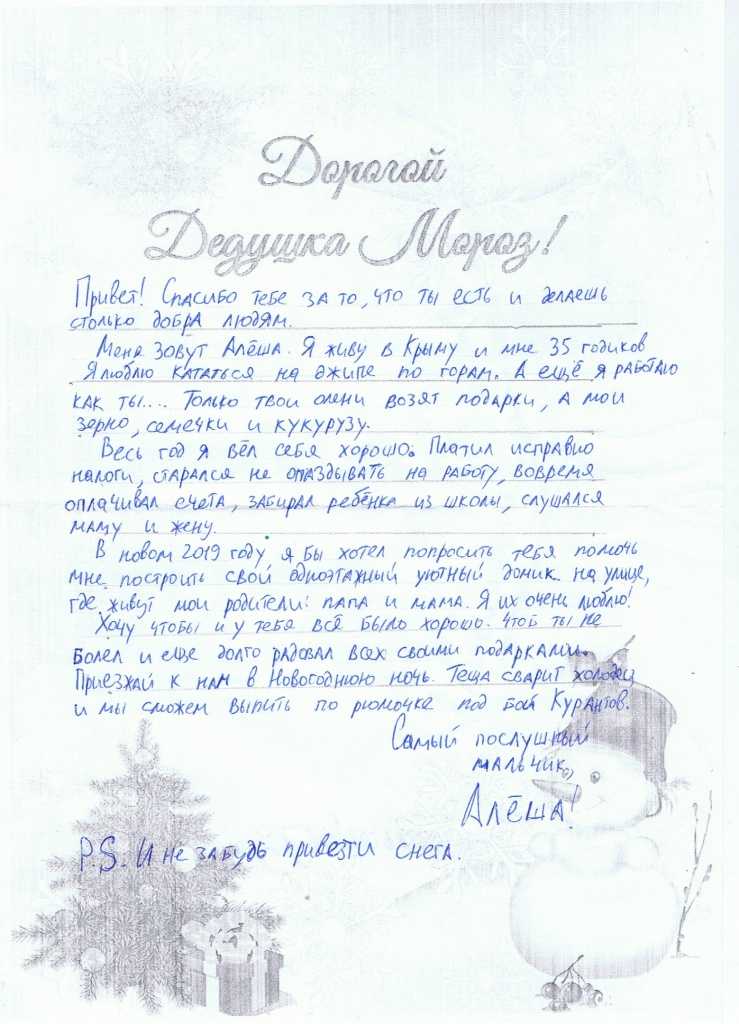 Дорогой
Дедушка Мороз!
Привет! Спасибо тебе за то, что ты есть и делаешь
столько добра людям.
Меня зовут Алёша. Я живу в Крыму и мне 35 годиков
Я люблю кататься на джипе по горам. А ещё я работаю
как ты.... Только твои олени возят подарки, а мои
зерно, семечки и кукурузу.
Весь год я вёл себя хорошо. Платил исправно
налоги, старался не опаздывать на работу, вовремя
оплачивал счета, забирал ребёнка из школы, слушался
маму и жену.
В новом 2019 году я бы хотел попросить тебя помочь
мне построить свой одноэтажный уютный домик на улице,
где живут мои родители: папа и мама. Я их очень люблю!
Хочу чтобы и у тебя всё было хорошо. Чтоб ты не
болел и еще долго радовал всех своими подарками.
Приезжай к нам в Новогоднюю ночь. Теща сварит холодец
и мы сможем выпить по рюмочке под бой Курантов.
Самый послушный
мальчик,
Алёша!
P.S. И не забудь привезти снега.